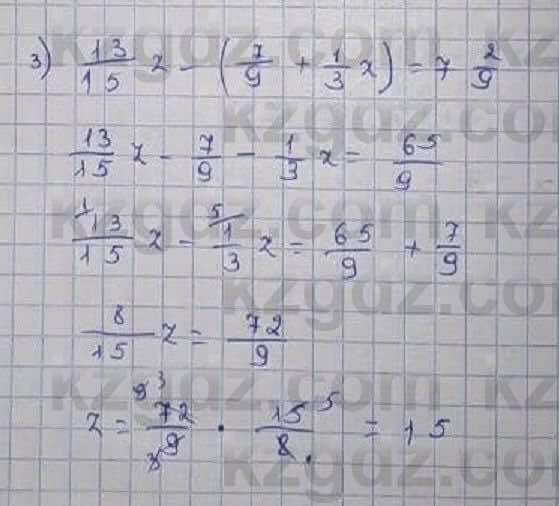 3) 13/15 z - (7/9 + 1/3 z) = 7 2/9
13/15 z - 7/9 - 1/3 z = 65/9
1 13/15 z - 5 1/3 z = 65/9 + 7/9
8/15 z = 72/9
z = 9 3 72/9 3 · 15 5/8 = 15
kzgdz.com